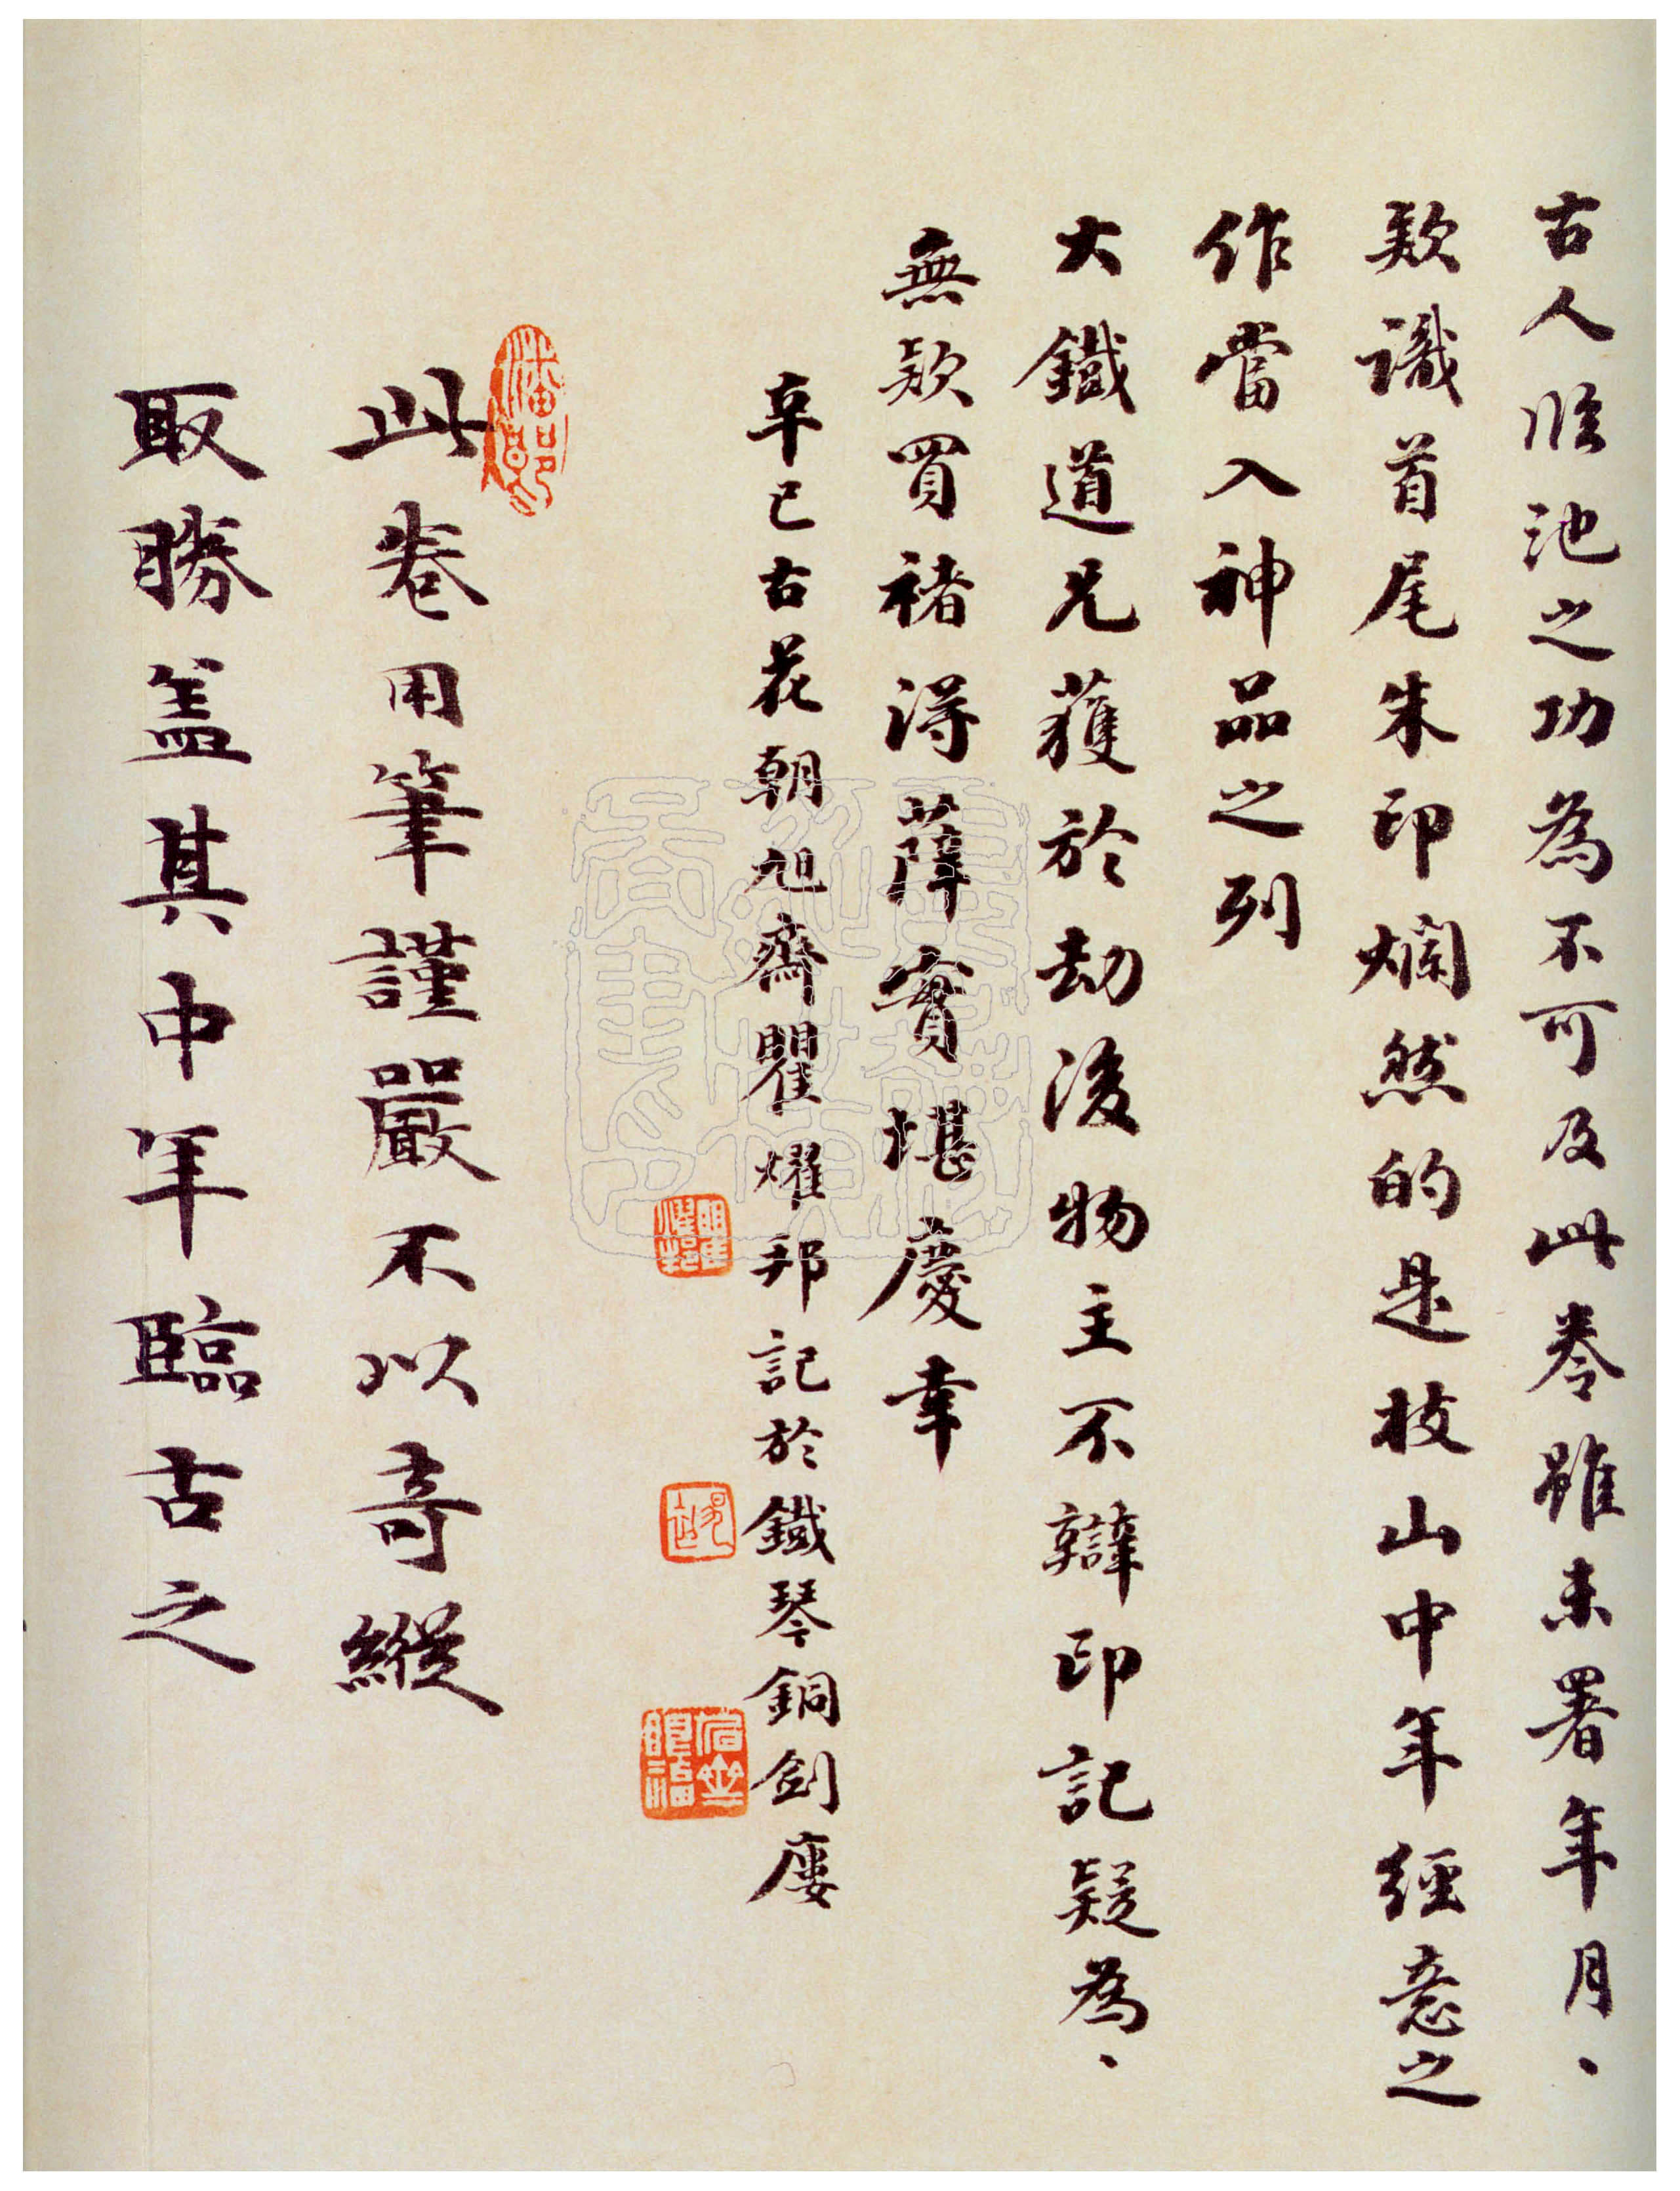 古人臨池之功為不可及此卷雖未署年月、
欵識首尾朱印爛然的是枝山中年經意之
作當入神品之列
大鐵道兄獲於劫後物主不辯印記疑為、
無欵買褚得薛實堪慶幸
辛巳古花朝旭齋瞿燿邦記於鐵琴銅劍廔
此卷用筆謹嚴不以奇縱
取勝盖其中年臨古之
潘郎